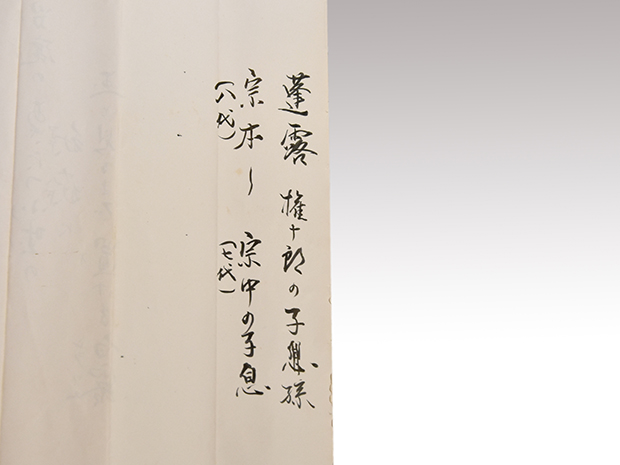 蓬露 権十郎の子息孫
宗本〜 宗中の子息
（八代） （七代）